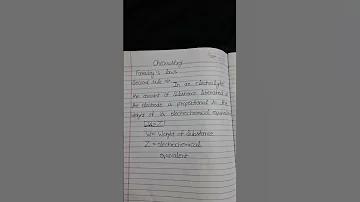 Chemistry
Faraday's laws
Second rule
In an electrolysis
the amount of substance liberated at
the electrode is proportional to the
weight of its electrochemical equivalent
W = Weight of substance
Z = electrochemical
equivalent